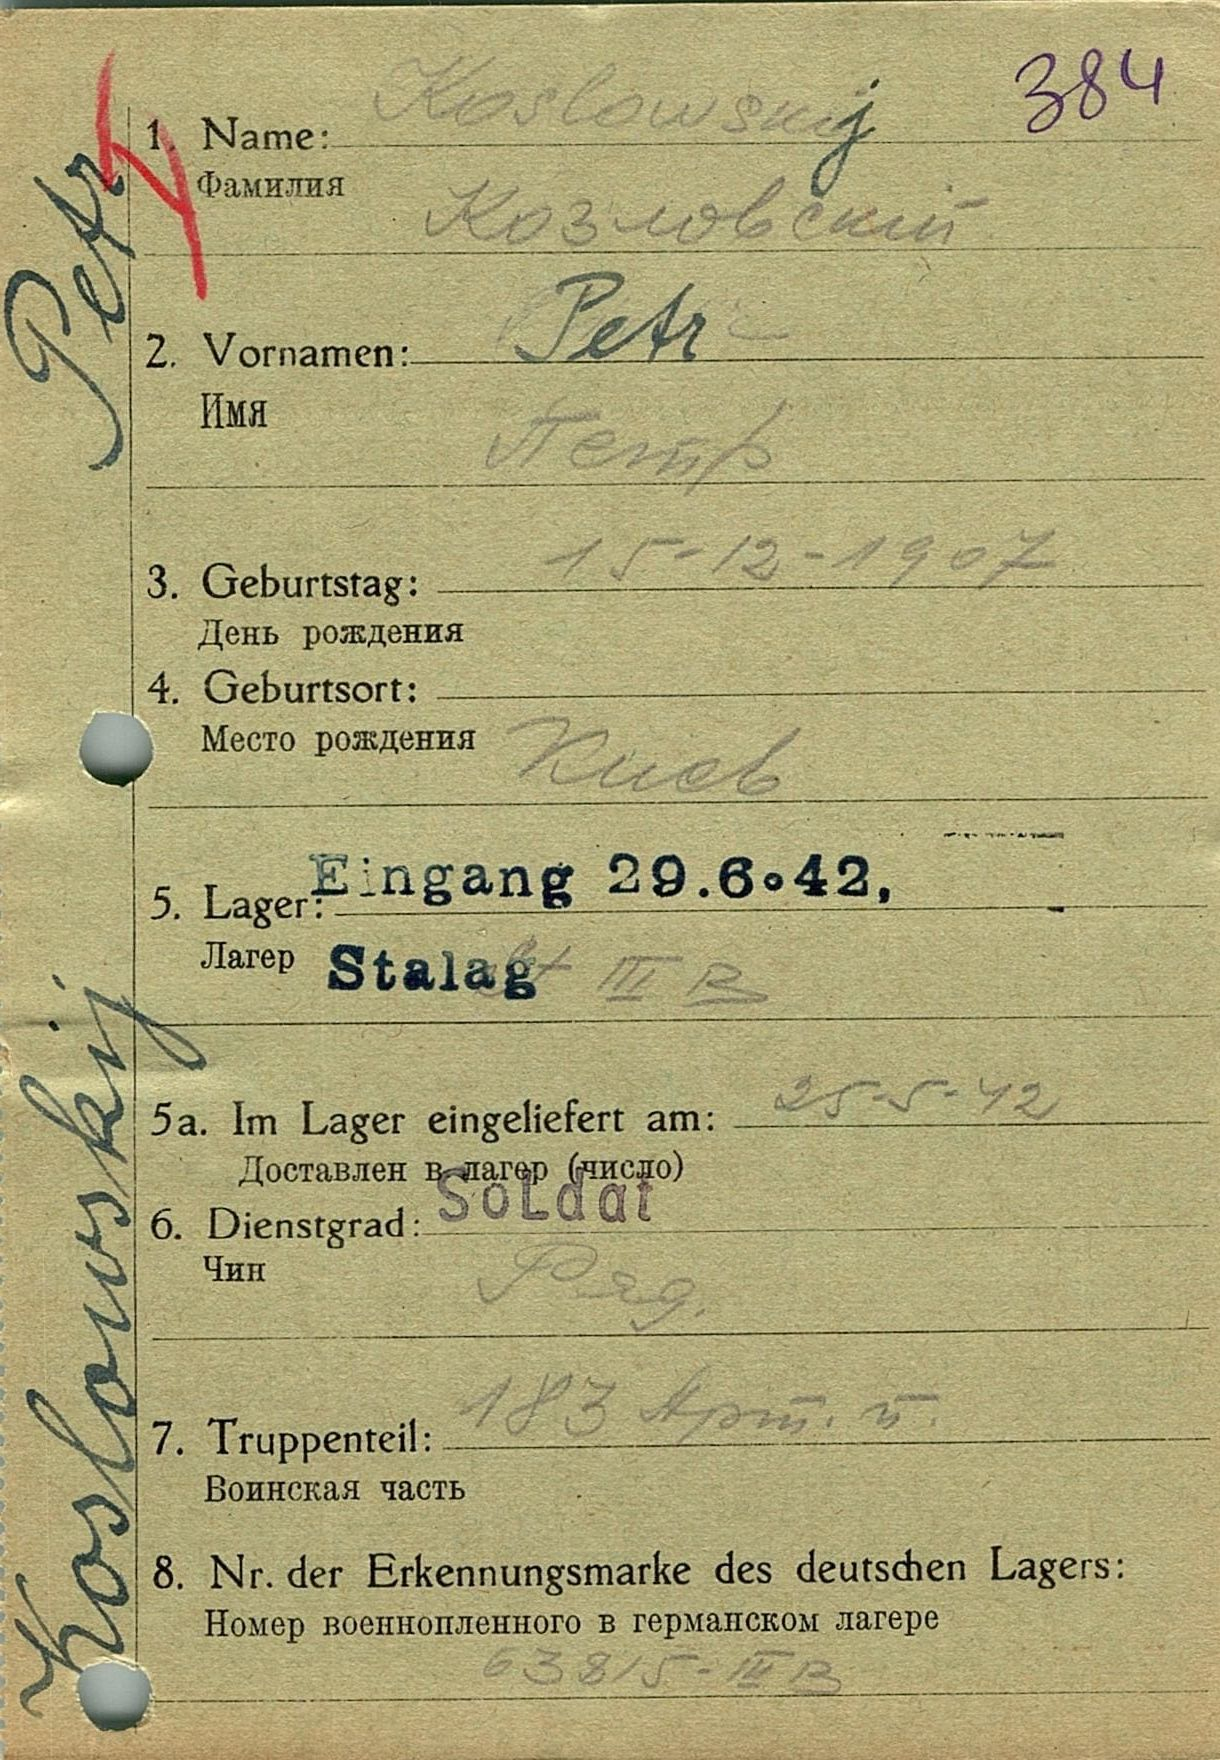 384
1. Name: Koslowskij
Фамилия
Козловский
2. Vornamen: Petr
Имя
Петр
3. Geburtstag: 15-12-1907
День рождения
4. Geburtsort:
Место рождения Киев
Eingang 29.6.42,
5. Lager:
Лагер Stalag III B
5a. Im Lager eingeliefert am: 25-5-42
Доставлен в лагер (число)
6. Dienstgrad: Soldat
Чин Ряд.
7. Truppenteil: 183 Арт. п.
Воинская часть
8. Nr. der Erkennungsmarke des deutschen Lagers:
Номер военнопленного в германском лагере
63815-III B
Koslowskij Petr